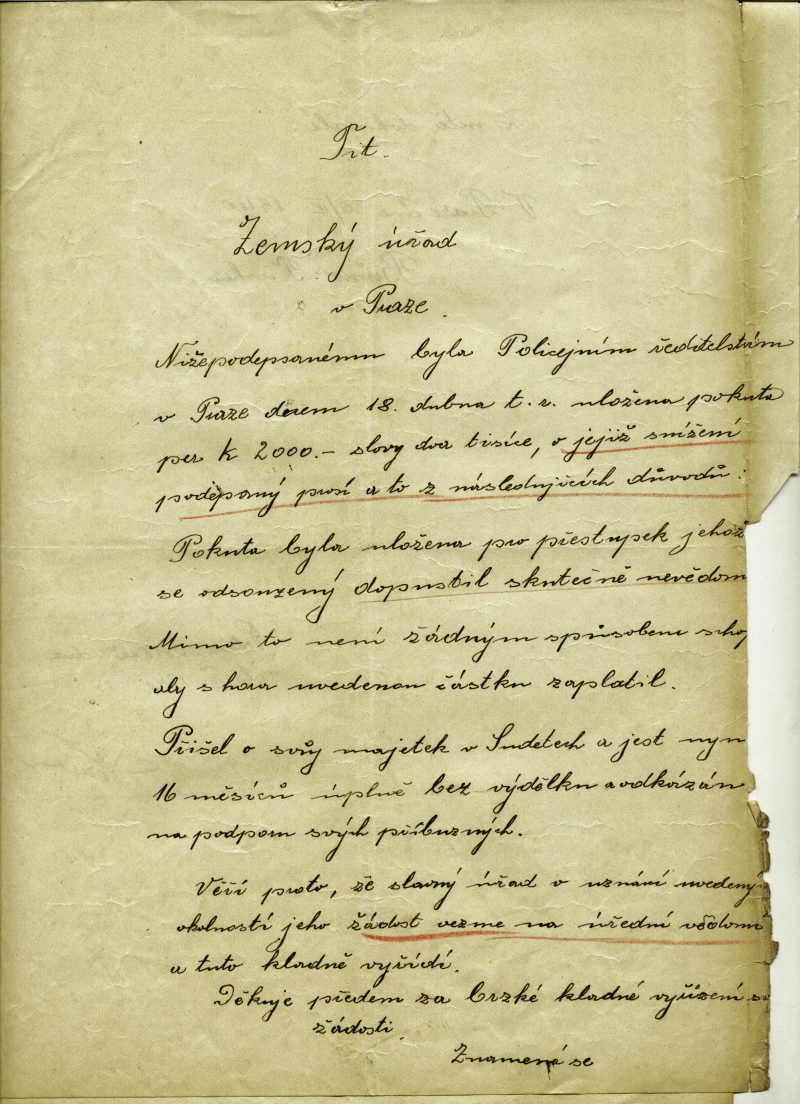 Tit.
Zemský úřad
v Praze.
Nížepodepsanému byla Policejním ředitelstvím
v Praze dnem 18. dubna t. r. uložena pokuta
per K 2000.- slovy dva tisíce, o jejíž snížení
podepsaný prosí a to z následujících důvodů:
Pokuta byla uložena pro přestupek jehož
se odsouzený dopustil skutečně nevědom
Mimo to není žádným spůsobem schop
aby shora uvedenou částku zaplatil.
Přišel o svůj majetek v Sudetech a jest nyn
16 měsíců úplně bez výdělku a odkázán
na podporu svých příbuzných.
Věří proto, že slavný úřad v uznání uvedený
okolností jeho žádost vezme na úřední vědomí
a tuto kladně vyřídí.
Děkuje předem za brzké kladné vyřízení
žádosti
Znamená se